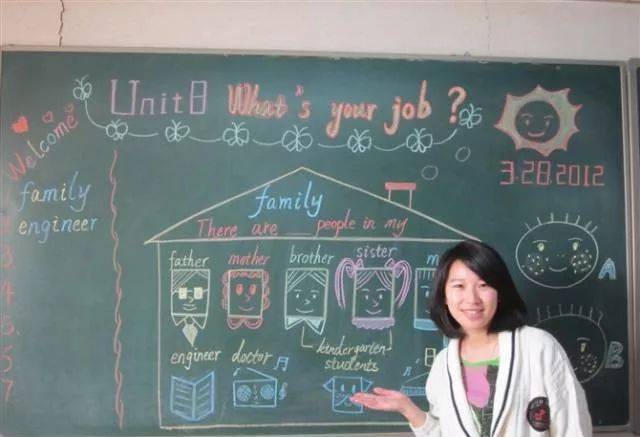 Unit 8 What's your job?
Welcome
3.28.2012
family
engineer
family
There are ___ people in my
father mother brother sister m
engineer doctor kindergarten
students
A
B
3
4
5
5
7
8